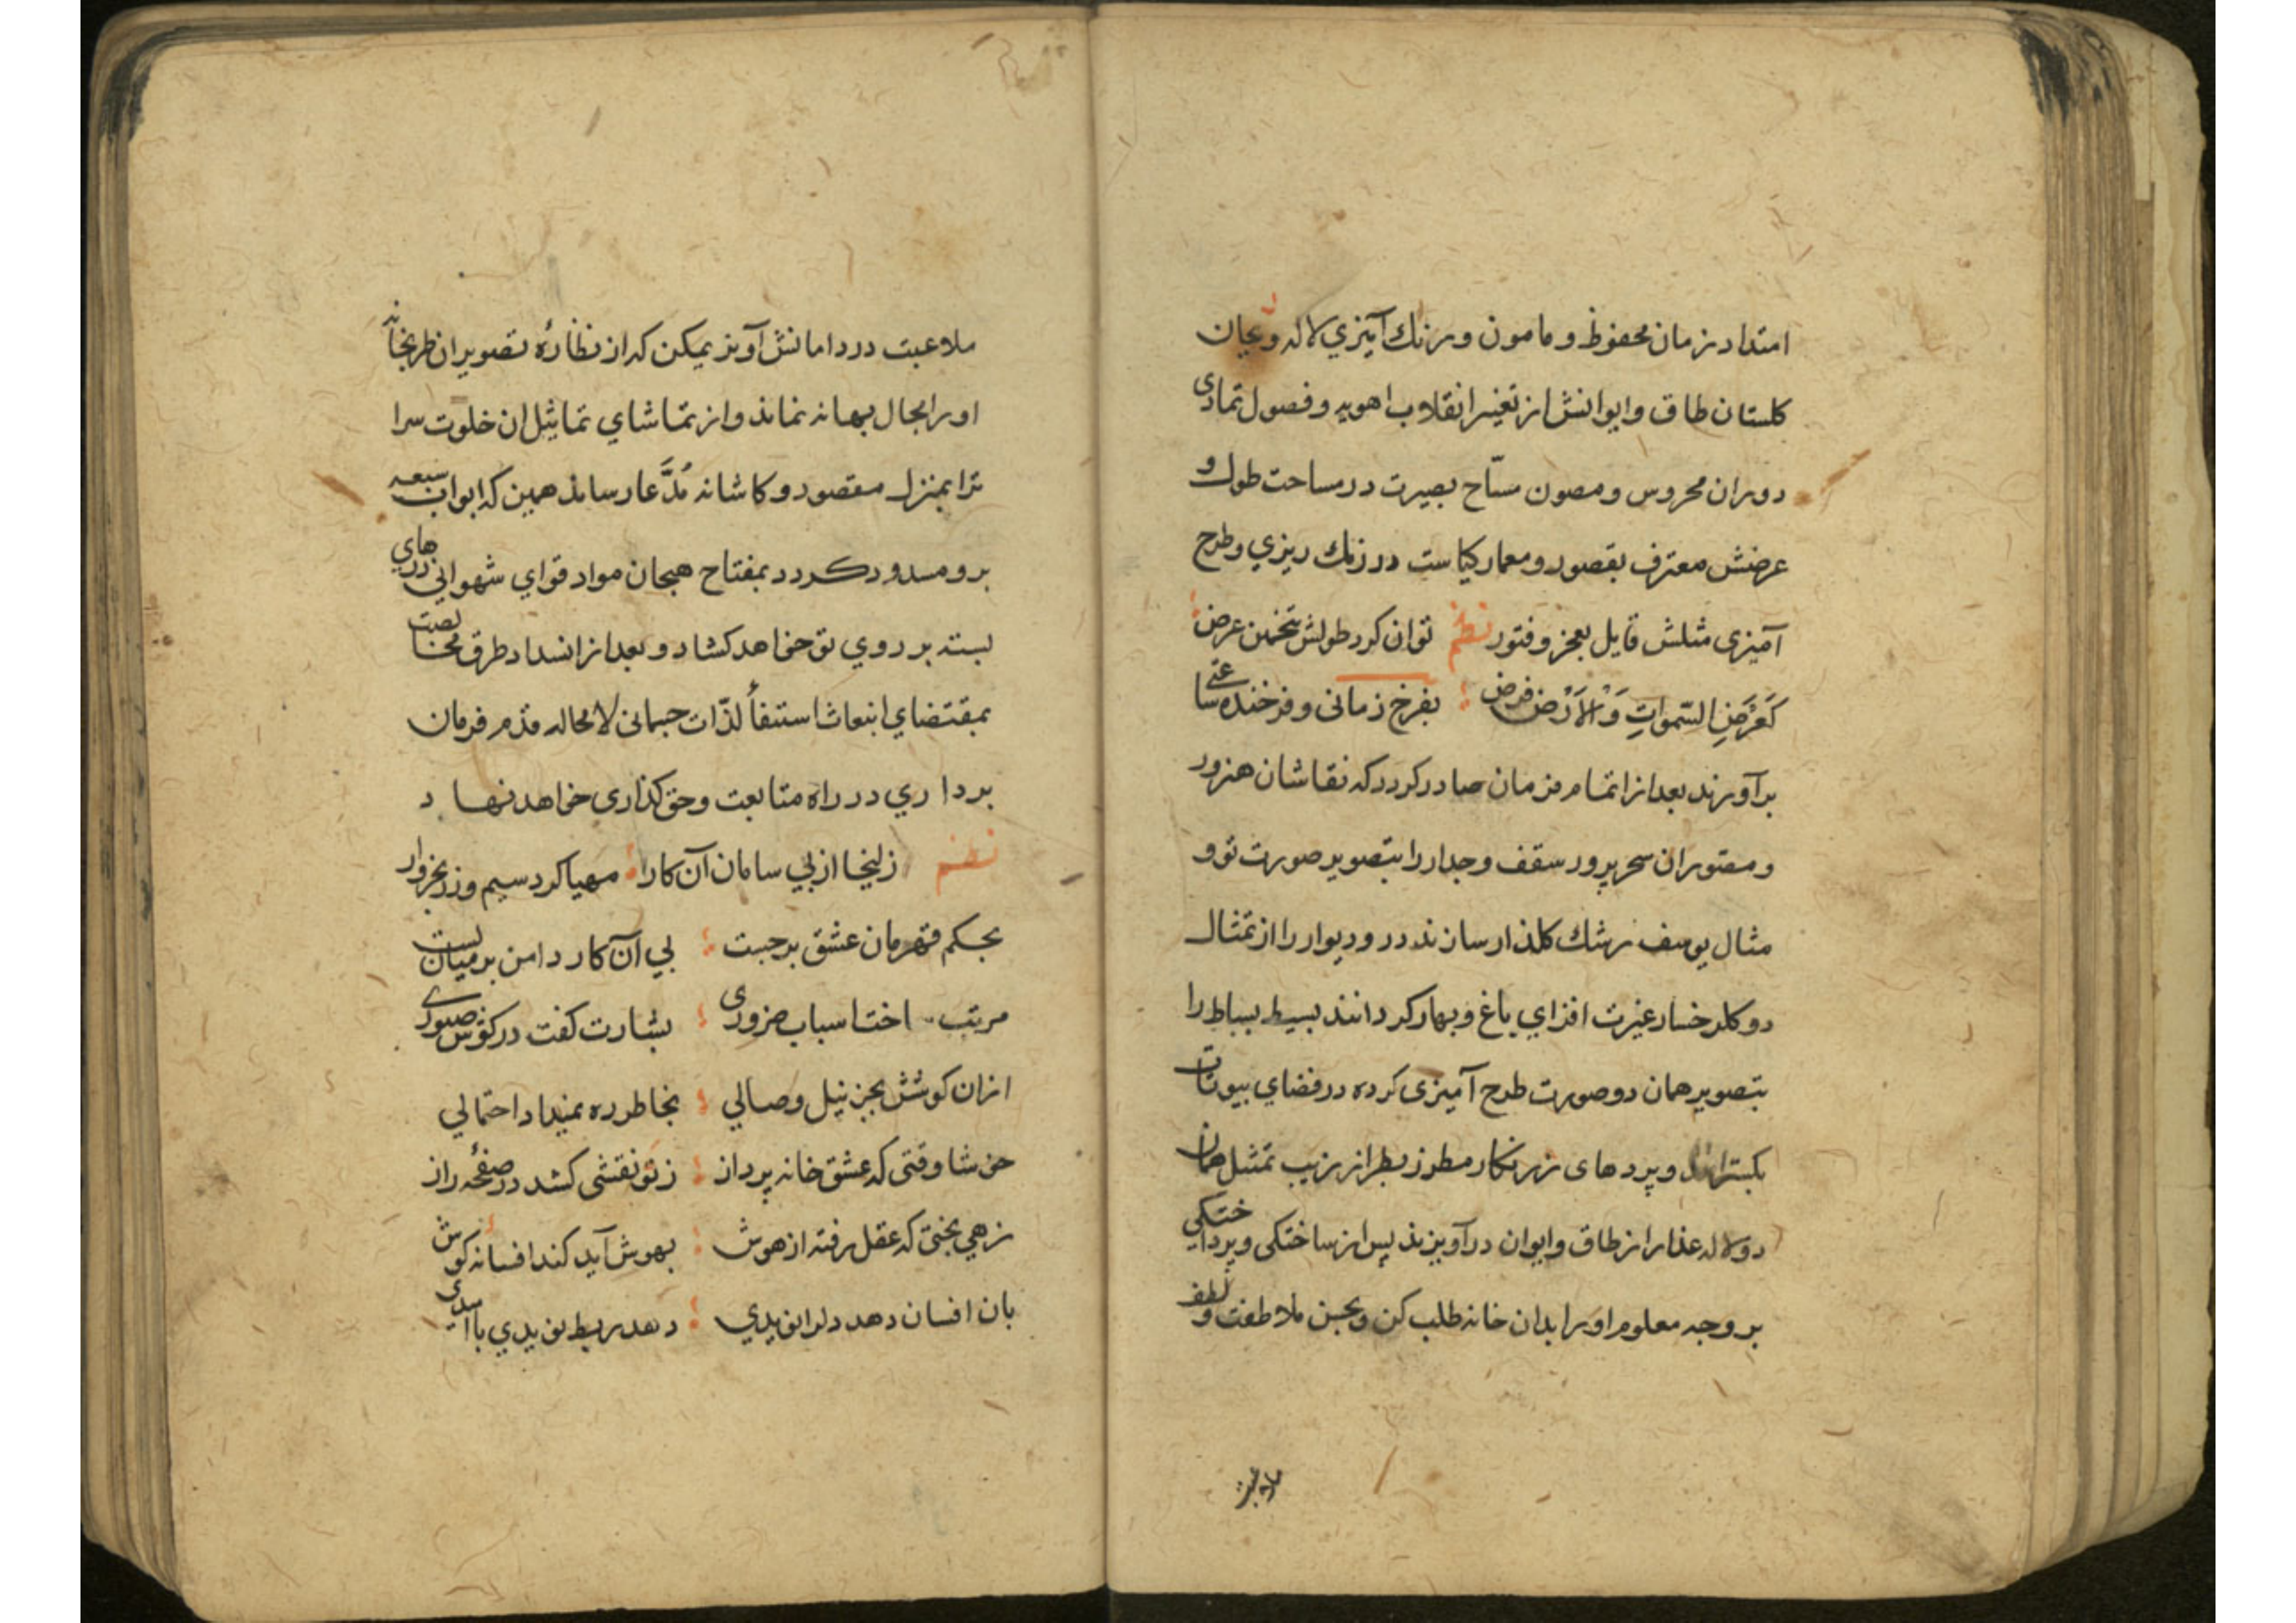 امتداد زمان محفوظ و مامون و رنك آميزي لاله و ريحان
كلستان طاق و ايوانش از تغير انقلاب اهويه و فصول تمادى
دوران محروس و مصون مسّاح بصيرت در مساحت طول و
عرضش معترف بقصور و معمار كياست در رنك ريزي و طرح
آميزى مثلش قايل بعجز و فتور نظم توان كرد طولش بتخمين عرض
كَعَرْضِ السَّمواتِ وَالْاَرْض فرض بفرخ زمانى و فرخنده ساعتى
برآورند بعد از اتمام فرمان صادر كردد كه نقاشان هنرور
و مصوران سحرپرور سقف و جدار را بتصوير صورت تو و
مثال يوسف رشك كلذار سازند در و ديوار را از تمثال
دو كلرخسار غيرت افزاي باغ و بهار كردانند بسيط بساط را
بتصوير همان دو صورت طرح آميزى كرده در فضاي بيوتات
بكسترانند و پردهاى زرنكار مطرز بطراز زيب تمثيل همان
دو لاله عذار از طاق و ايوان درآويزند پس از ساختكى و پرداختكي
بر وجه معلوم او را بدان خانه طلب كن و بحسن ملاطفت و لطف
ملاعبت
ملاعبت در دامانش آويز يمكن كه از نظارهٔ تصوير ان طربخانه
او را مجال بهانه نماند و از تماشاي تماثيل ان خلوت سرا
ترا بمنزل مقصود و كاشانه مُدَّعا رساند همين كه ابواب سبعه
برو مسدود كردد بمفتاح هيجان مواد قواي شهوانى درهاي
بسته بر روي تو خواهد كشاد و بعد از انسداد طرق مخالصت
بمقتضاي انبعاث استيفأ لذّات جسمانى لا محاله قدم فرمان
برداري در راه متابعت و حق كذارى خواهد نهاد
نظم زليخا از پي سامان آن كار مهيا كرد سيم و زر بخروار
بحكم قهرمان عشق برجست پي آن كار دامن بر ميان بست
مرتب ساخت اسباب ضرورى بشارت كفت در كوش صبورى
ازان كوشش بجز نيل وصالي بخاطر ره نميداد احتمالي
خوشا وقتى كه عشق خانه پرداز ز نو نقشى كشد در صفحهٔ راز
زهي بختى كه عقل رفته از هوش بهوش آيد كند افسانه كوش
بان افسان دهد دل را نويدي دهد ربط نويدي با اميدى